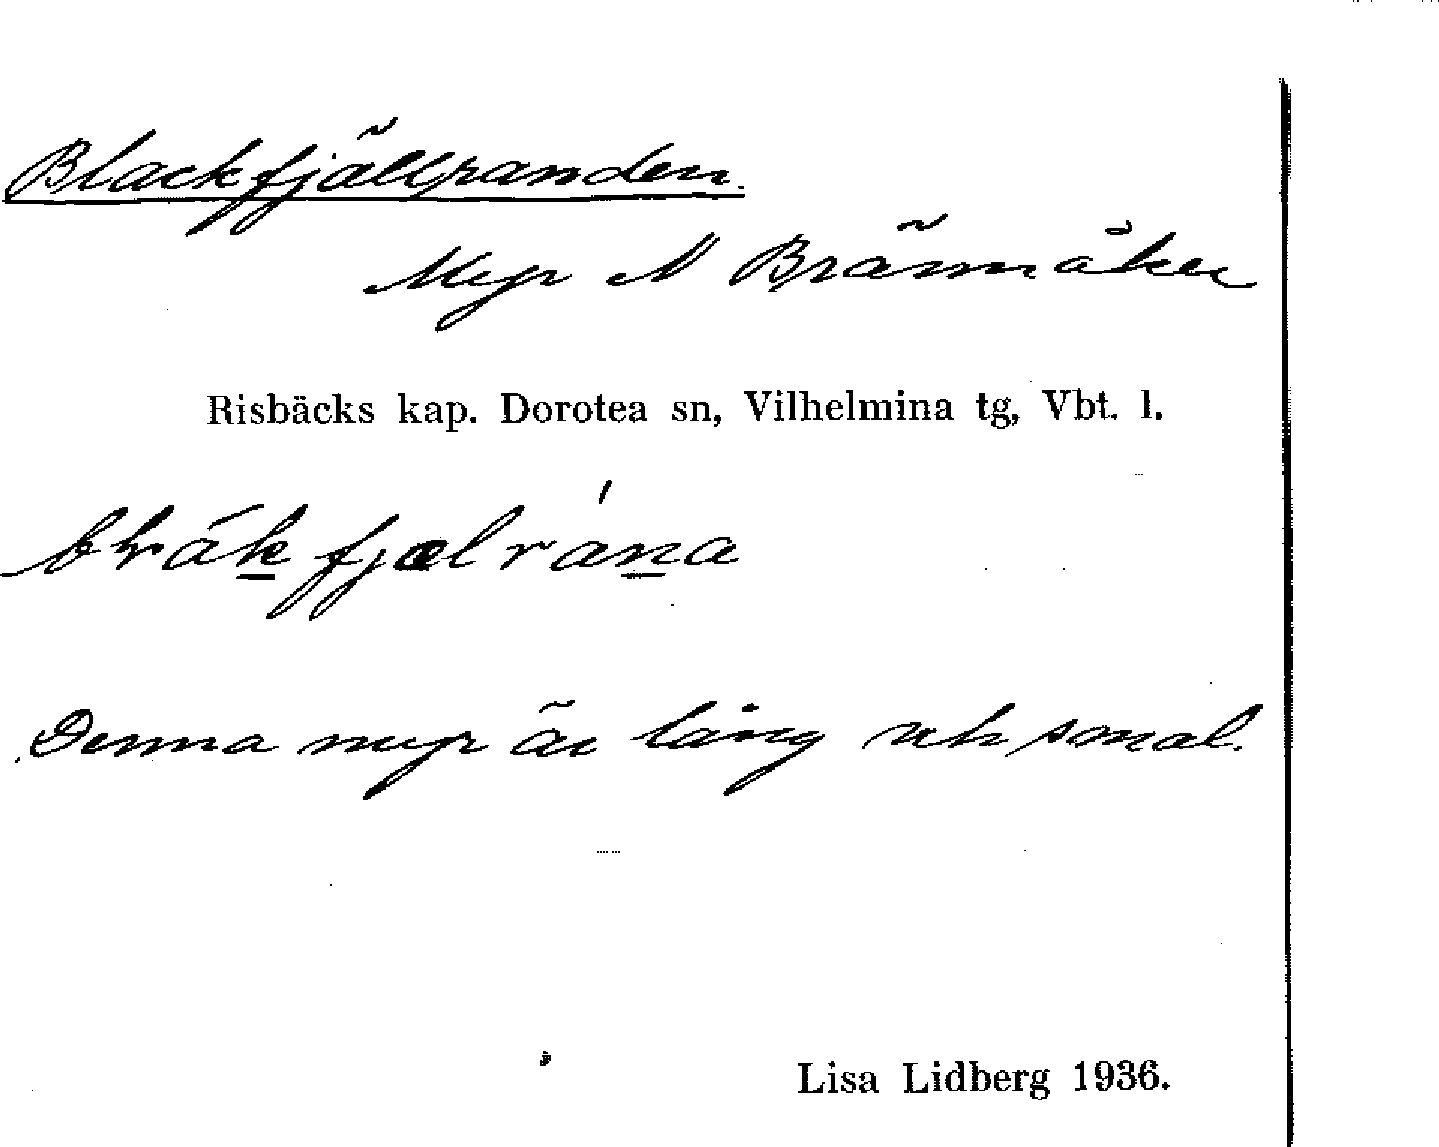 Blackfjällranden.
Myr N Brännåker
Risbäcks kap. Dorotea sn, Vilhelmina tg, Vbt. l.
Denna myr är lång och smal.
Lisa Lidberg 1936.